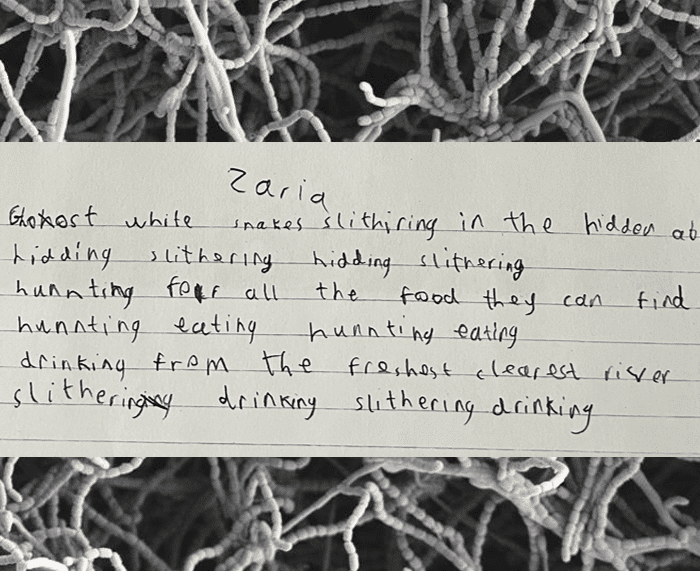 Zaria
Ghokost white snakes slithiring in the hidden ab
hidding slithering hidding slithering
hunnting for all the food they can find
hunnting eating hunnting eating
drinking from the freshost clearest river
slithering drinking slithering drinking